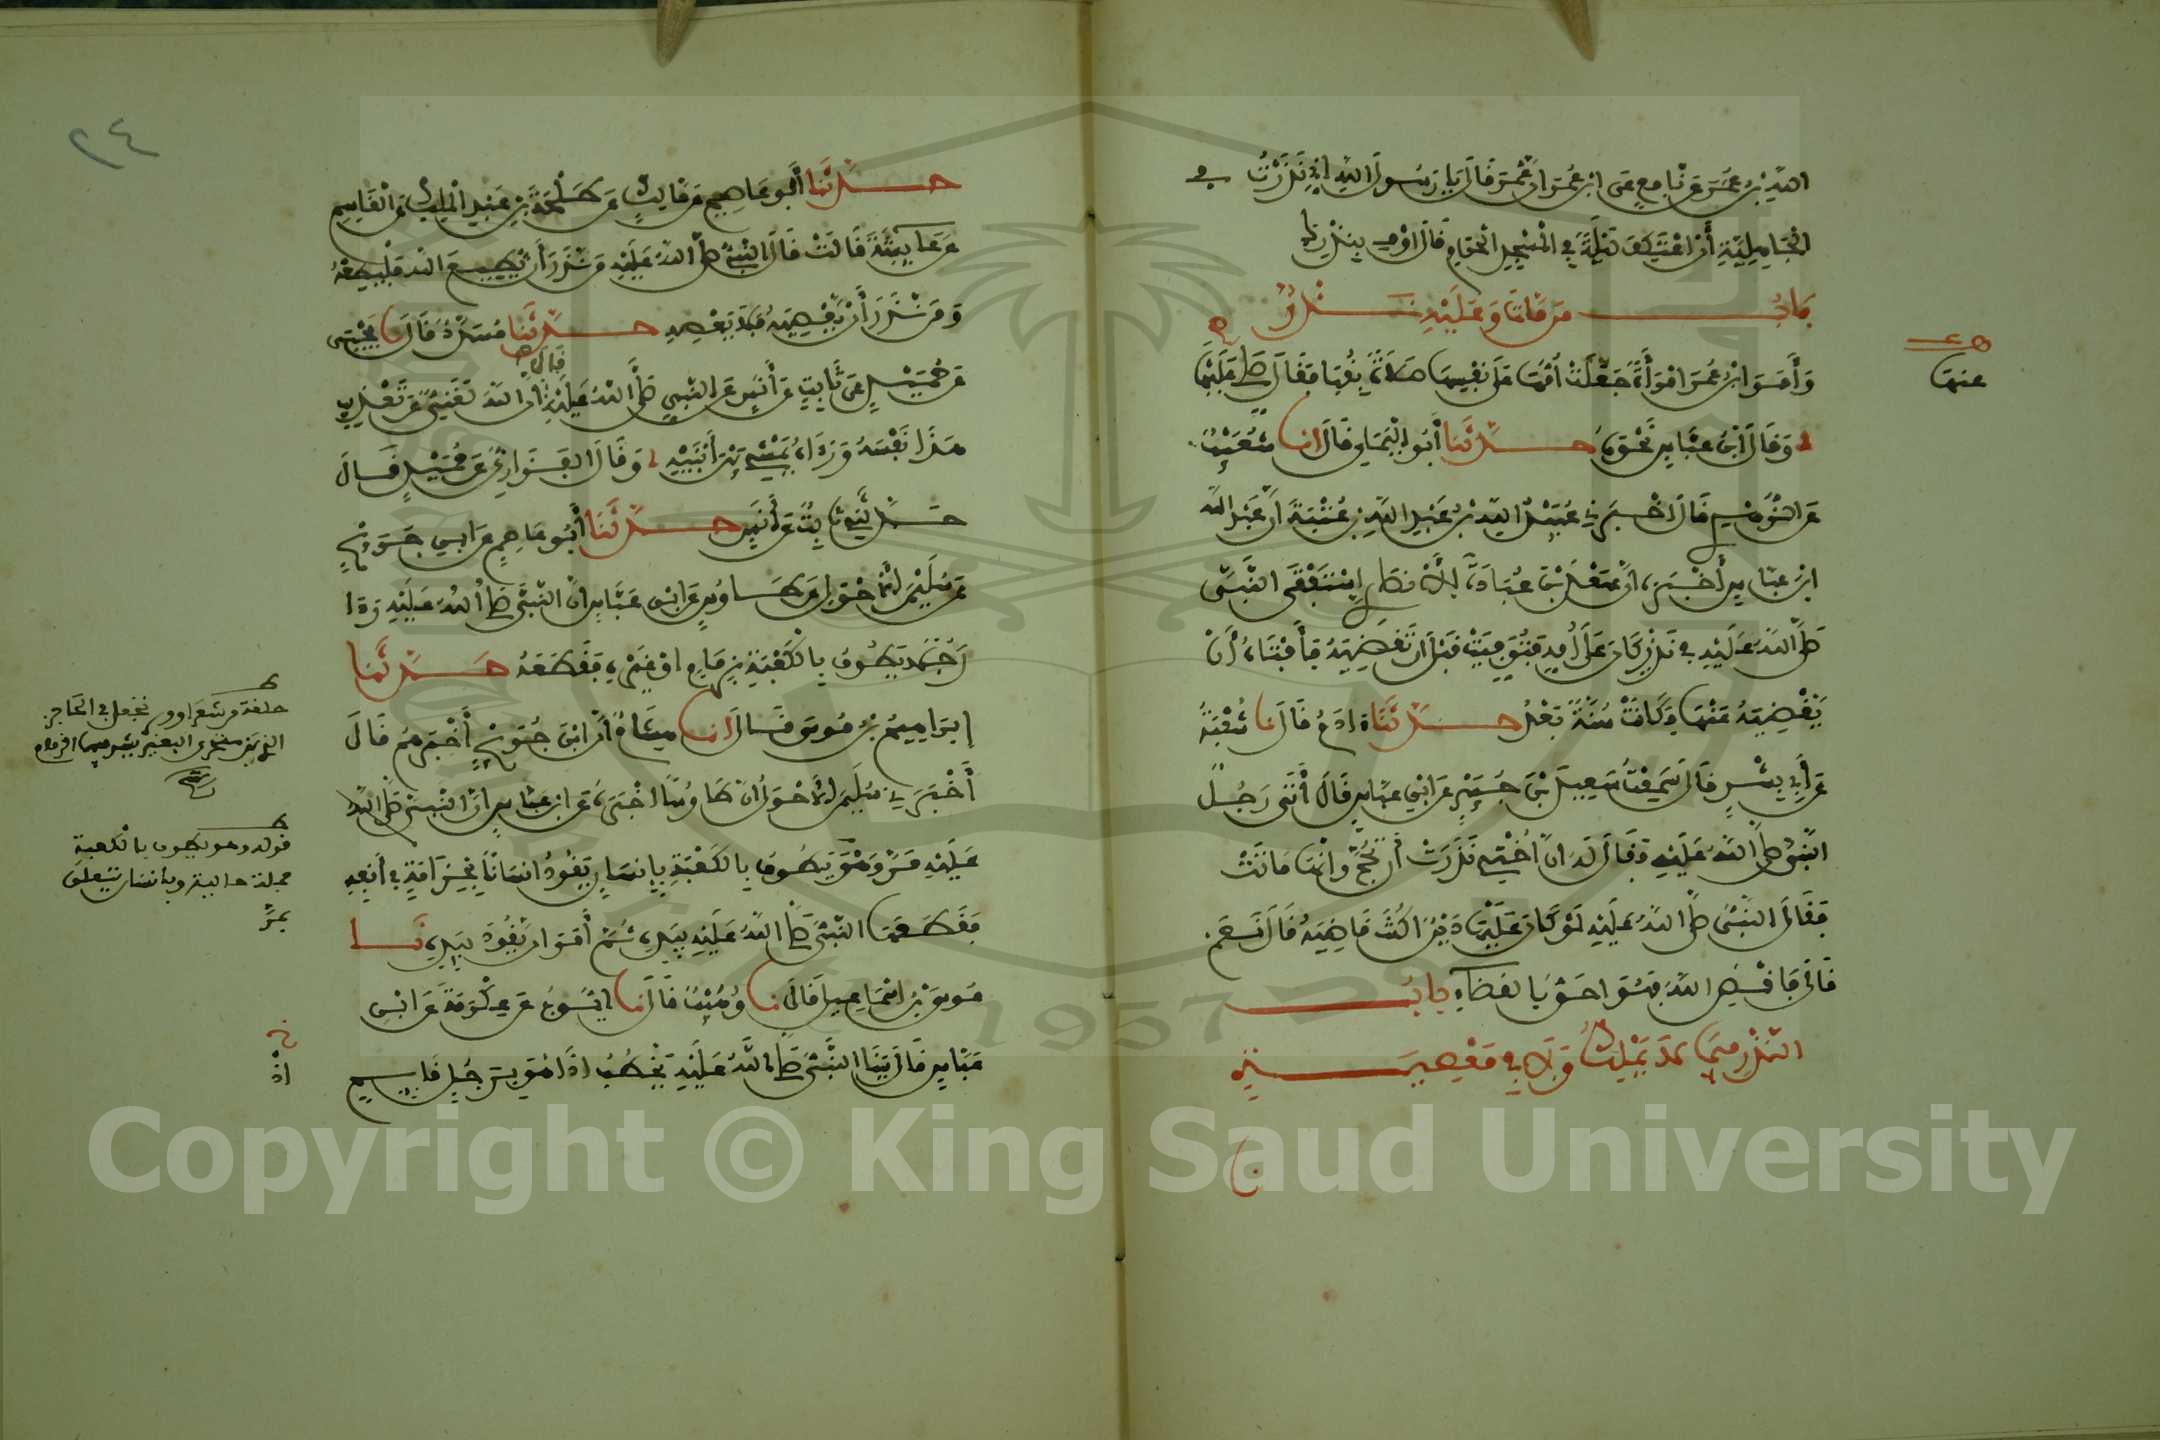 الله بن عمر عن نافع عن ابن عمر ان عمر قال يا رسول الله اني نذرت في
الجاهلية أن اعتكف ليلة في المسجد الحرام قال اوف بنذرك
باب من مات وعليه نذر
وأمر ابن عمر امرأة جعلت أمها على نفسها صلاة بقبا فقال صلي عليها
وقال ابن عباس نحوه حدثنا أبو اليمان قال انا شعيب
عن الزهري قال اخبرني عبيد الله بن عبد الله بن عتبة ان عبد الله
ابن عباس أخبره ان سعد بن عبادة الانصاري استفتى النبي
صلى الله عليه في نذر كان على أمه فتوفيت قبل ان تقضيه فأفتاه أن
يقضيه عنها فكانت سنة بعد حدثنا ادم قال نا شعبة
عن أبي بشر قال سمعت سعيد بن جبير عن ابن عباس قال أتى رجل
النبي صلى الله عليه فقال له ان أختي نذرت أن تحج وانها ماتت
فقال النبي صلى الله عليه لو كان عليها دين اكنت قاضيه قال نعم
قال فاقض الله فهو احق بالقضاء باب
النذر فيما لا يملك ولا في معصية
عنها
٢٤
حدثنا أبو عاصم عن مالك عن طلحة بن عبد الملك عن القاسم
عن عايشة قالت قال النبي صلى الله عليه من نذر أن يطيع الله فليطعه
ومن نذر أن يعصيه فلا يعصه حدثنا مسدد قال نا يحيى
عن حميد عن ثابت عن أنس عن النبي صلى الله عليه قال ان الله لغني عن تعذيب
هذا نفسه وراه يمشي بين ابنيه وقال الفزاري عن حميد قال
حدثني ثابت عن أنس حدثنا أبو عاصم عن ابن جريج
عن سليمن الاحول عن طاوس عن ابن عباس ان النبي صلى الله عليه را
رجلا يطوف بالكعبة بزمام او غيره فقطعه حدثنا
إبراهيم بن موسى قال انا هشام أن ابن جريج أخبرهم قال
أخبرني سليمن الاحول ان طاوسا اخبره عن ابن عباس ان النبي صلى الله
عليه مر وهو يطوف بالكعبة بإنسان يقود انسانا بخزامة في أنفه
فقطعها النبي صلى الله عليه بيده ثم أمره ان يقوده بيده نا
موسى بن اسماعيل قال نا وهيب قال نا ايوب عن عكرمة عن ابن
عباس قال بينا النبي صلى الله عليه يخطب اذا هو برجل قايم
حلقة من شعر او وبر تجعل في الحاجز
الذي بين منخري البعير يشد فيها الزمام
قوله وهو يطوف بالكعبة
جملة حالية وبانسان يتعلق
بمر
اذ